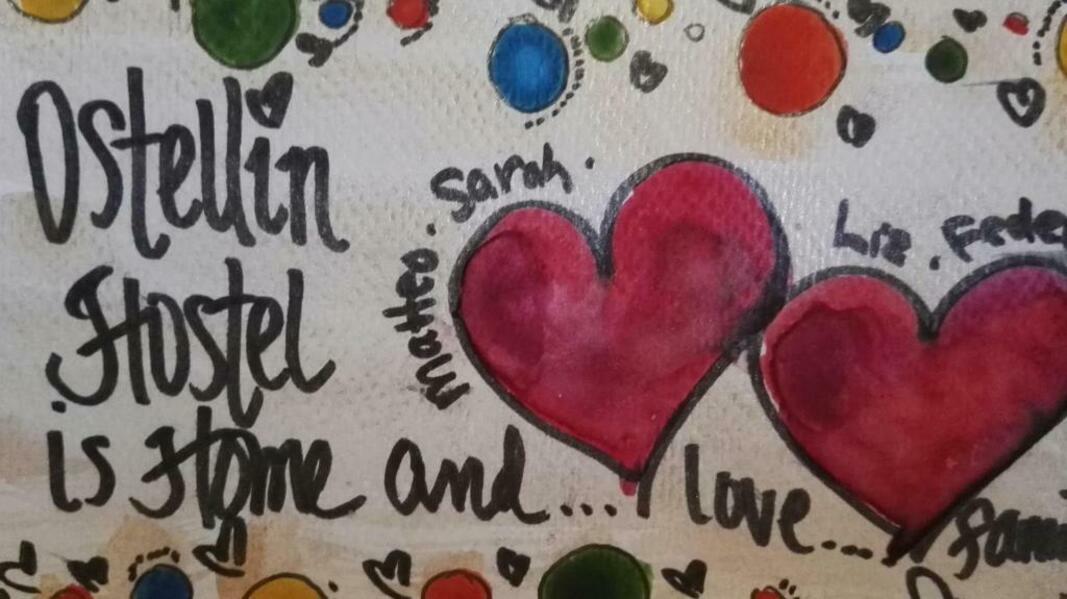 Ostellin
Hostel
is Home and.... love....
Matteo. Sarah.
Liz.